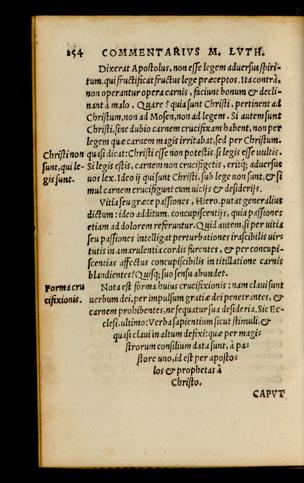 254 COMMENTARIVS M. LVTH.
Dixerat Apostolus, non esse legem aduersus spiri-
tum, qui fructificat fructus lege præceptos. Ita contrà,
non operantur opera carnis, faciunt bonum & decli-
nant à malo. Quare? quia sunt Christi, pertinent ad
Christum, non ad Mosen, non ad legem. Si autem sunt
Christi, sine dubio carnem crucifixam habent, non per
legem quæ carnem magis irritabat, sed per Christum.
Christi non
sunt, qui le-
gis sunt.
quasi dicat: Christi esse non potestis, si legis esse uultis.
Si legis estis, carnem non crucifigetis, eritq; aduersus
uos lex. Ideo ij qui sunt Christi, sub lege non sunt, & si
mul carnem crucifigunt cum uicijs & desiderijs.
Vitia seu græce passiones, Hiero. putat generalius
dictum: ideo additum. concupiscentijs, quia passiones
etiam ad dolorem referuntur. Quid autem, si per uitia
seu passiones intelligat perturbationes irascibilis uir-
tutis in amarulentia cordis furentes, & per concupi-
scentias affectus concupiscibilis in titillatione carnis
blandientes? Quisq; suo sensu abundet.
Forma cru
cifixionis.
Nota est forma huius crucifixionis: nam claui sunt
uerbum dei, per impulsum gratiæ dei penetrantes, &
carnem prohibentes, ne sequatur sua desideria. Sic Ec-
clesi. ultimo: Verba sapientium sicut stimuli, &
quasi claui in altum defixi: quæ per magi-
strorum consilium data sunt, à pa-
store uno, id est per aposto-
los & prophetas à
Christo.
CAPVT